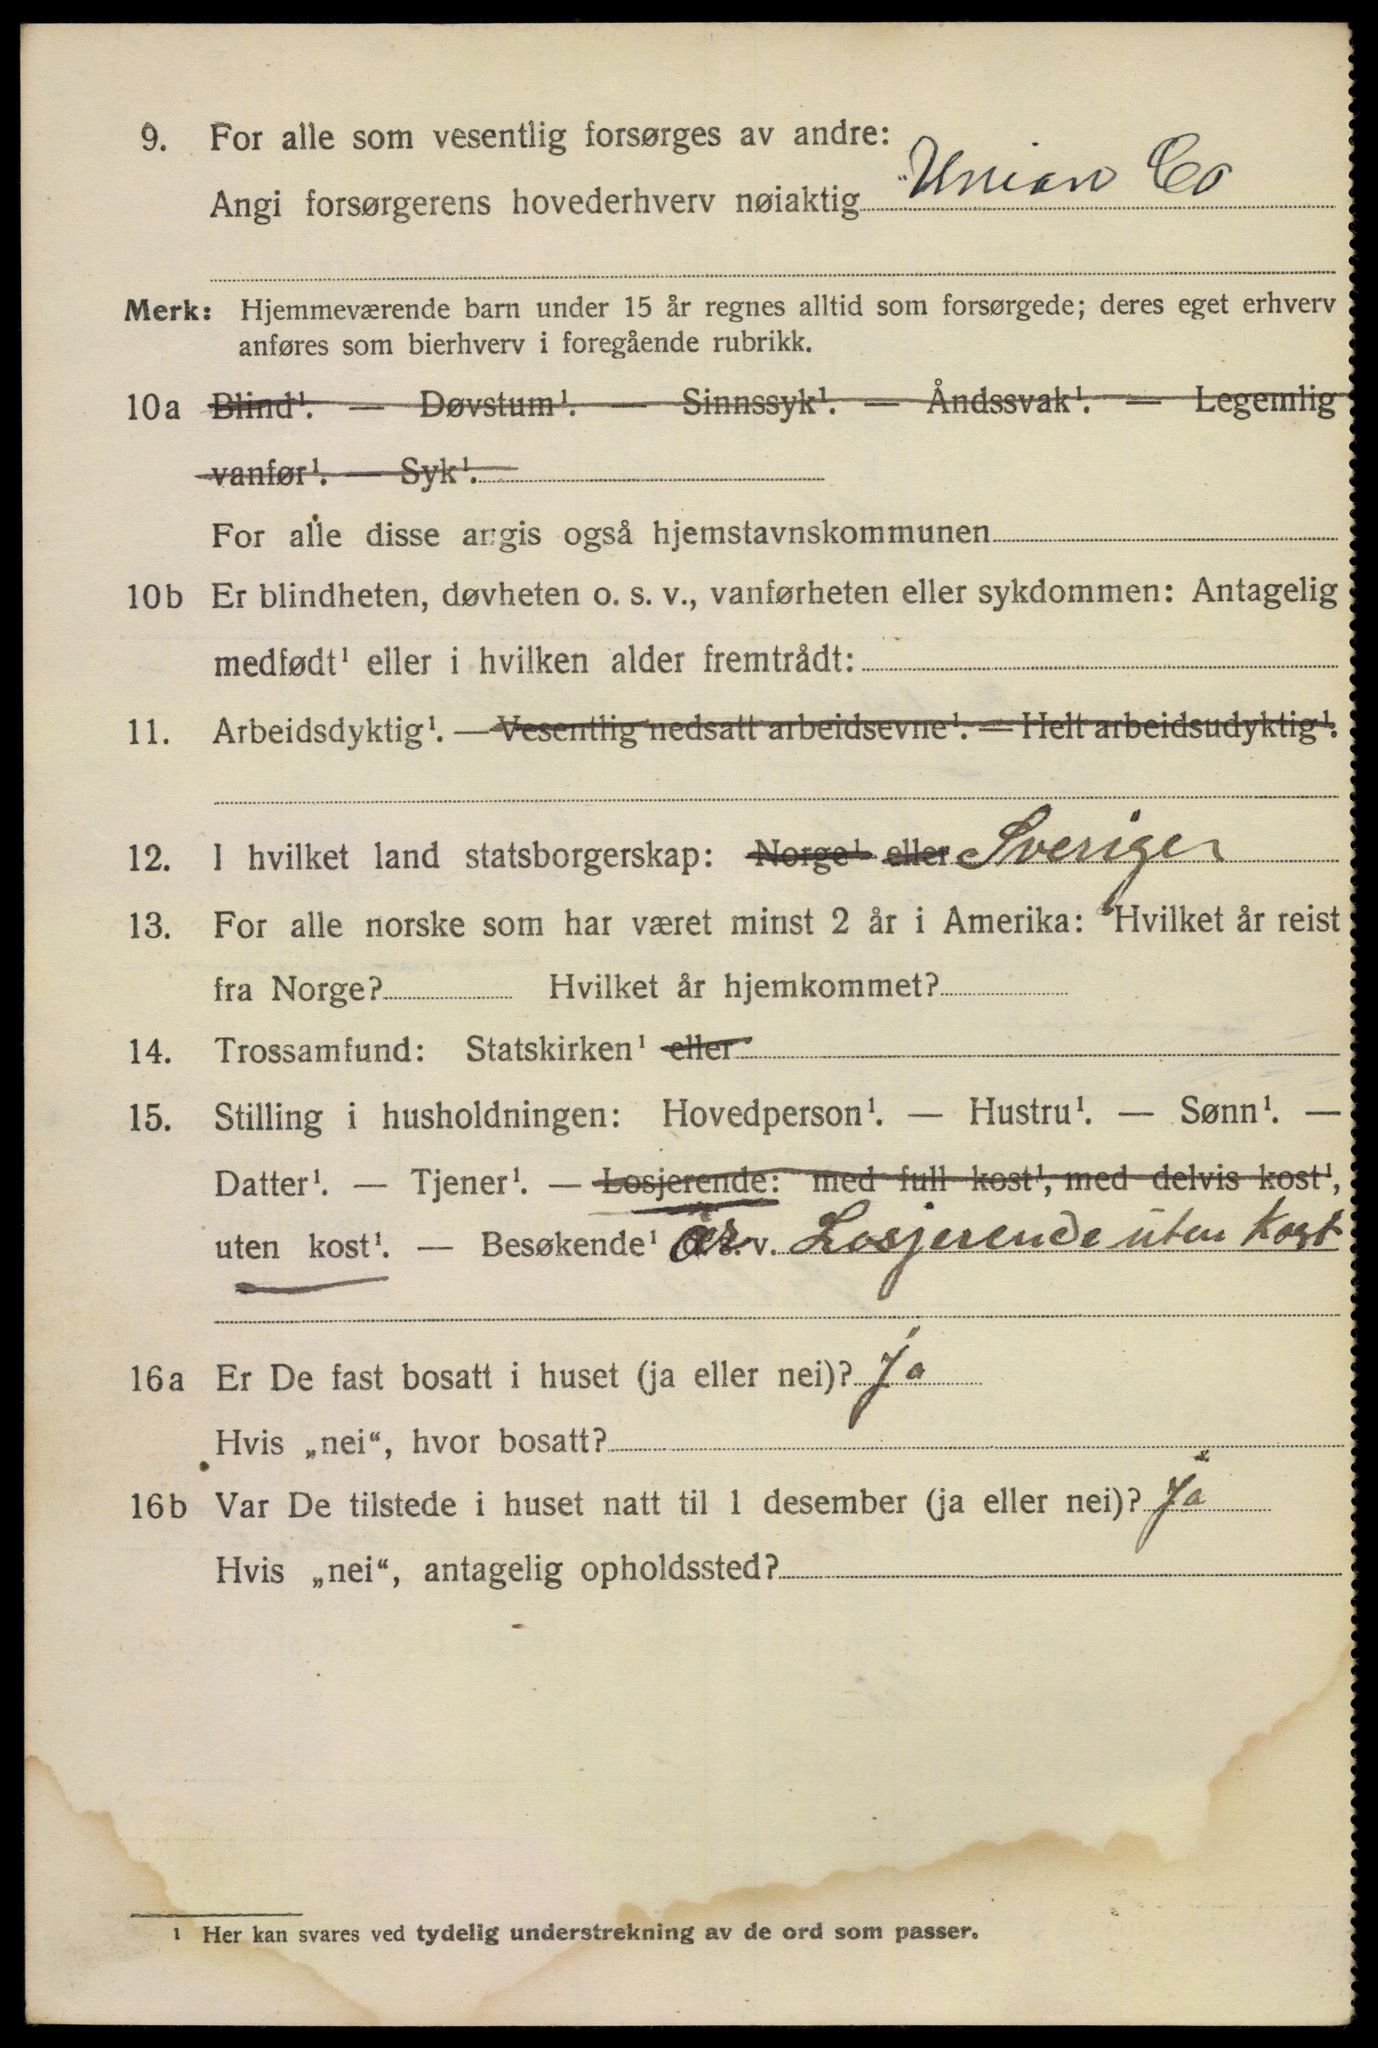 9. For alle som vesentlig forsørges av andre:
Angi forsørgerens hovederhverv nøiaktig Union Co
Merk: Hjemmeværende barn under 15 år regnes alltid som forsørgede; deres eget erhverv
anføres som bierhverv i foregående rubrikk.
10a Blind¹. — Døvstum¹. — Sinnssyk¹. — Åndssvak¹. — Legemlig
vanfør¹. — Syk¹.
For alle disse angis også hjemstavnskommunen
10b Er blindheten, døvheten o. s. v., vanførheten eller sykdommen: Antagelig
medfødt¹ eller i hvilken alder fremtrådt:
11. Arbeidsdyktig¹. — Vesentlig nedsatt arbeidsevne¹. — Helt arbeidsudyktig¹.
12. I hvilket land statsborgerskap: Norge¹ eller Sveriger
13. For alle norske som har været minst 2 år i Amerika: Hvilket år reist
fra Norge? Hvilket år hjemkommet?
14. Trossamfund: Statskirken¹ eller
15. Stilling i husholdningen: Hovedperson¹. — Hustru¹. — Sønn¹. —
Datter¹. — Tjener¹. — Losjerende: med full kost¹, med delvis kost¹,
uten kost¹. — Besøkende¹ är v. Losjerende uten kost
16a Er De fast bosatt i huset (ja eller nei)? Ja
Hvis „nei“, hvor bosatt?
16b Var De tilstede i huset natt til 1 desember (ja eller nei)? Ja
Hvis „nei“, antagelig opholdssted?
¹ Her kan svares ved tydelig understrekning av de ord som passer.